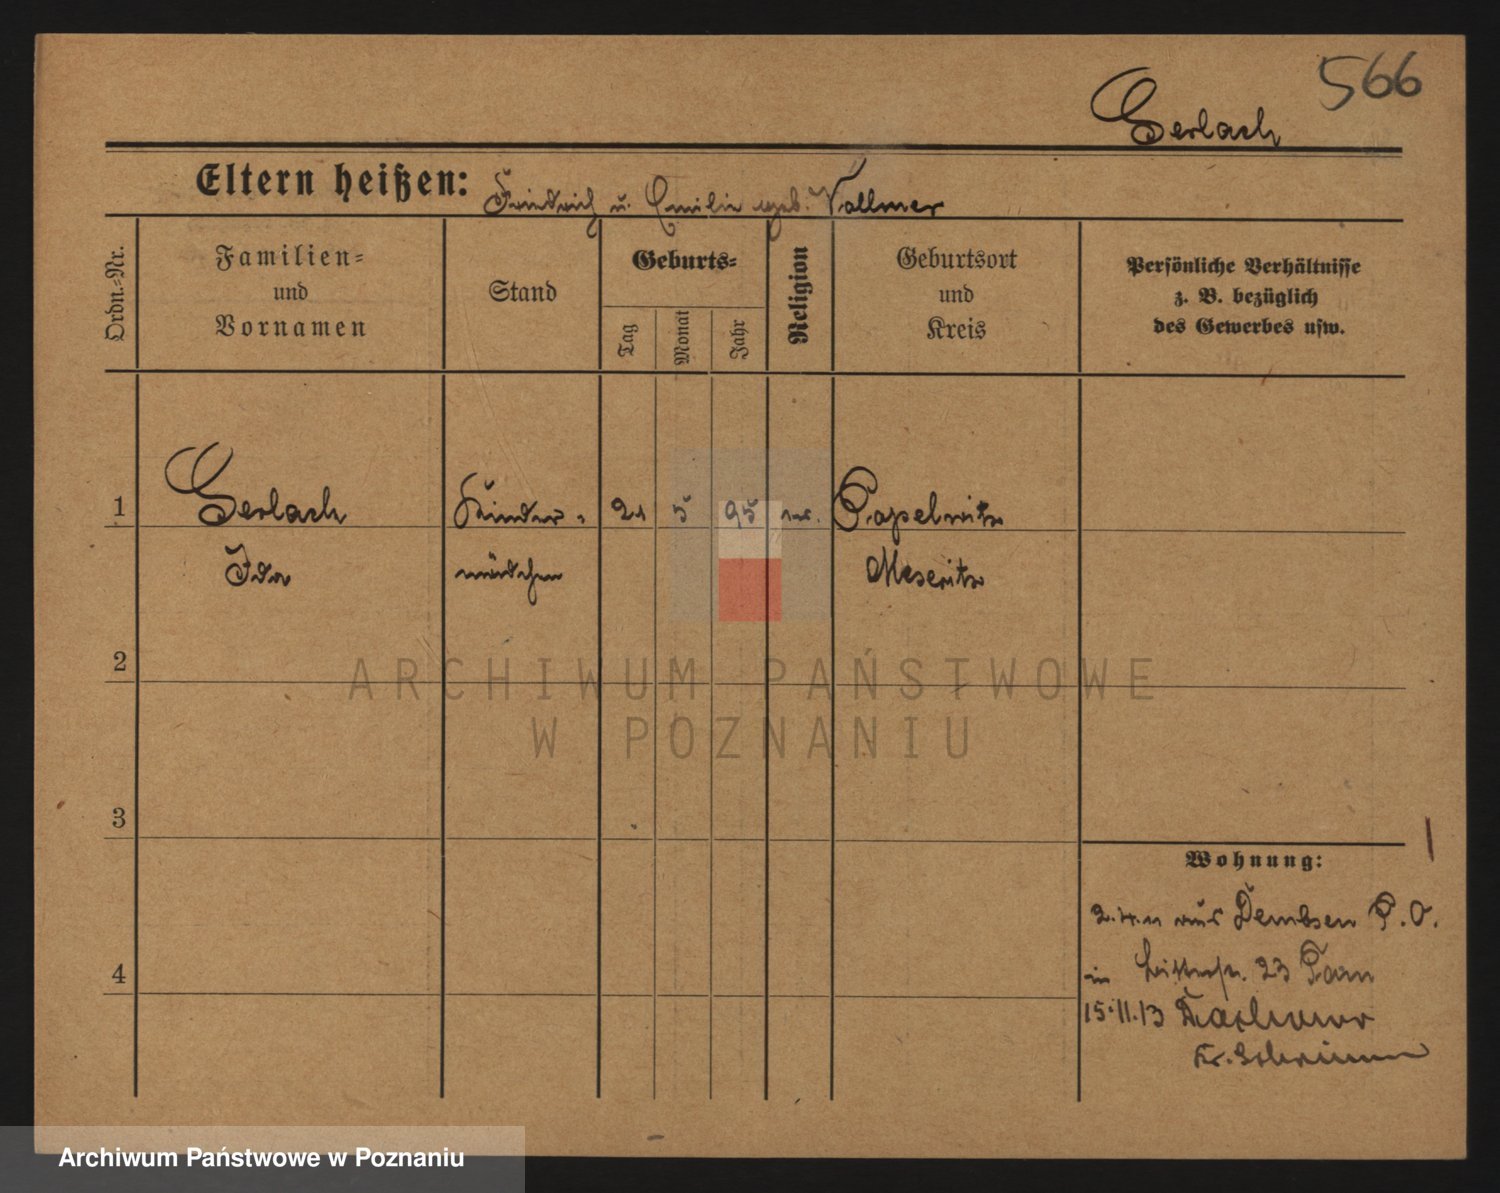 566
Gerlach
Eltern heißen: Friedrich u. Emilie geb. Vollmer
Ordn.-Nr.
Familien-
und
Vornamen
Stand
Geburts-
Tag
Monat
Jahr
Religion
Geburtsort
und
Kreis
Persönliche Verhältnisse
z. B. bezüglich
des Gewerbes usw.
1 Gerlach Kinder- 21 5 95 ev. Papelwitz
Ida mädchen Meseritz
2
ARCHIWUM PAŃSTWOWE
W POZNANIU
3
Wohnung:
aus Dembsen P. O.
4
in 23
15.11.13
Kr. Schrimm
Archiwum Państwowe w Poznaniu